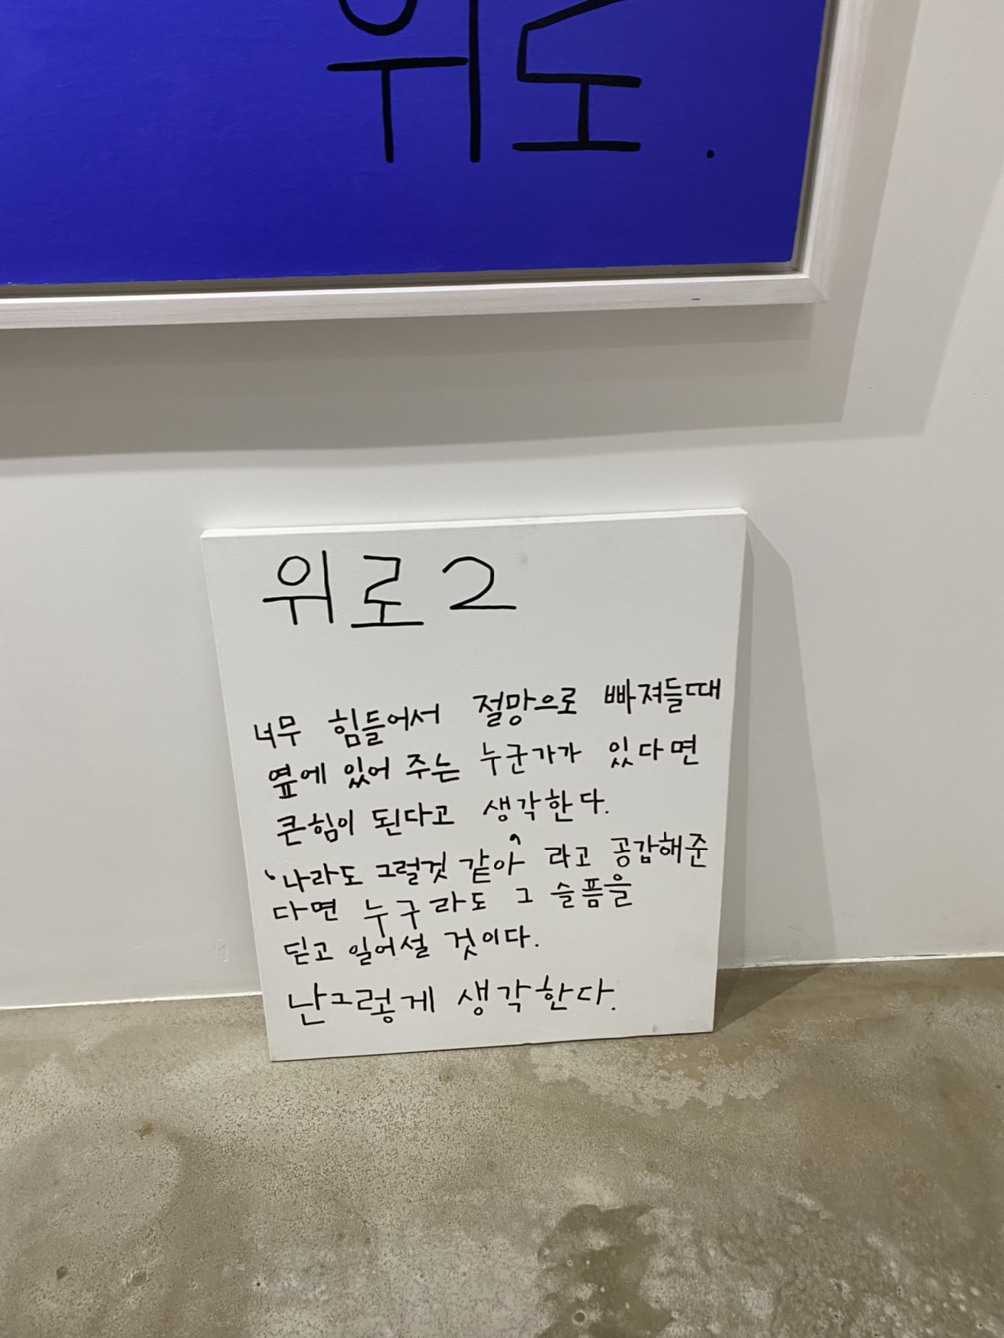 위로.
위로2
너무 힘들어서 절망으로 빠져들때
옆에 있어 주는 누군가가 있다면
큰힘이 된다고 생각한다.
'나라도 그럴것 같아' 라고 공감해준
다면 누구라도 그 슬픔을
딛고 일어설 것이다.
난그렇게 생각한다.